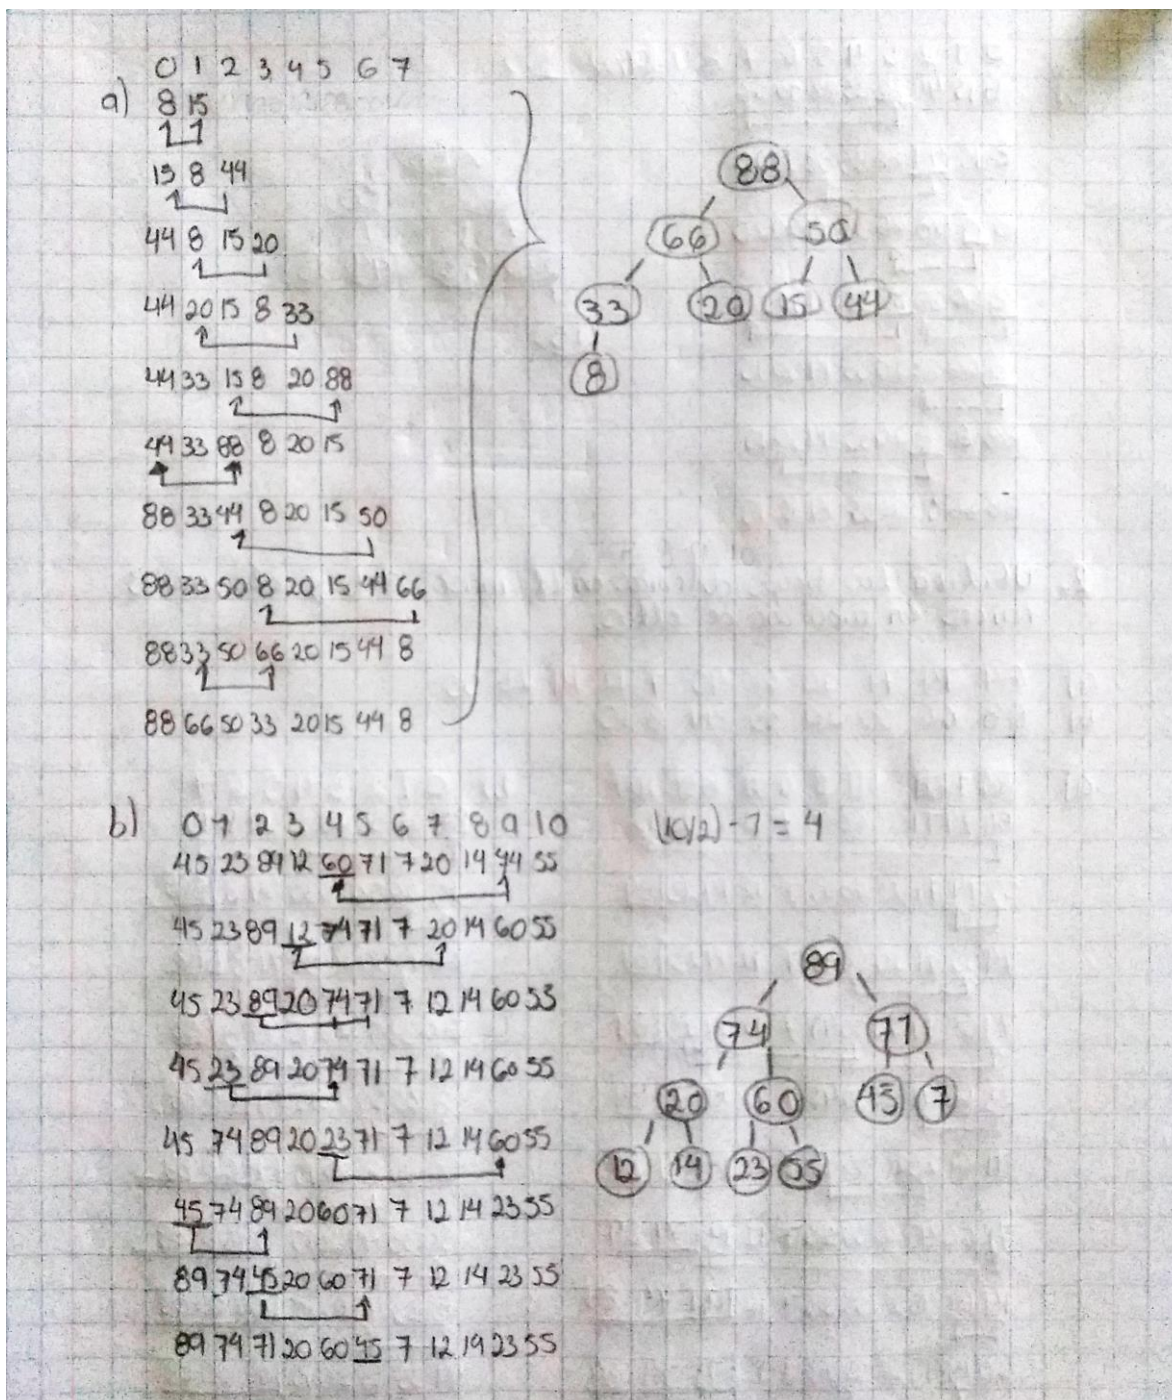 0 1 2 3 4 5 6 7
a) 8 15
15 8 44
44 8 15 20
44 20 15 8 33
44 33 15 8 20 88
44 33 88 8 20 15
88 33 44 8 20 15 50
88 33 50 8 20 15 44 66
88 33 50 66 20 15 44 8
88 66 50 33 20 15 44 8
88
66 50
33 20 15 44
8
b) 0 1 2 3 4 5 6 7 8 9 10
(10/2) - 1 = 4
45 23 89 12 60 71 7 20 14 74 55
45 23 89 12 74 71 7 20 14 60 55
45 23 89 20 74 71 7 12 14 60 55
45 23 89 20 74 71 7 12 14 60 55
45 74 89 20 23 71 7 12 14 60 55
45 74 89 20 60 71 7 12 14 23 55
89 74 45 20 60 71 7 12 14 23 55
89 74 71 20 60 45 7 12 14 23 55
89
74 71
20 60 45 7
12 14 23 55